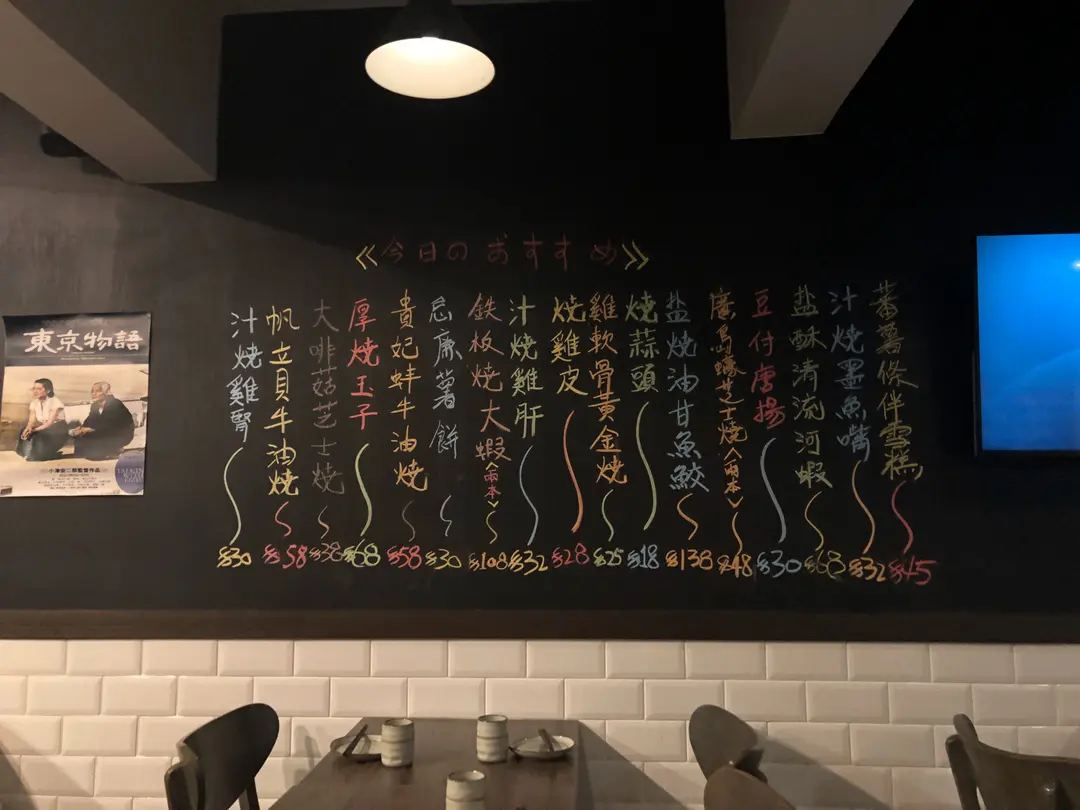 《今日のおすすめ》
蕃薯條伴雪糕 $45
汁燒墨魚嘴 $32
盐酥清流河蝦 $68
豆付唐揚 $30
廣島蠔芝士燒〈兩本〉 $48
盐燒油甘魚鮫 $138
燒蒜頭 $18
雞軟骨黃金燒 $25
燒雞皮 $28
汁燒雞肝 $32
鉄板燒大蝦〈兩本〉 $108
忌廉薯餅 $30
貴妃蚌牛油燒 $58
厚燒玉子 $68
大啡菇芝士燒 $38
帆立貝牛油燒 $58
汁燒雞腎 $30
東京物語
小津安二郎監督作品